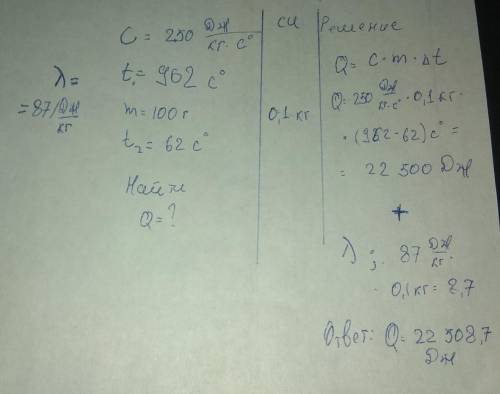 C = 250 Дж/кг·C°
λ = 87 Дж/кг
t₁ = 962 C°
m = 100 г
t₂ = 62 C°
Найти
Q = ?
СИ
0,1 кг
Решение
Q = C · m · Δt
Q = 250 Дж/кг·C° · 0,1 кг ·
· (962 - 62) C° =
= 22 500 Дж
+
λ ; 87 Дж/кг ·
· 0,1 кг = 8,7
Ответ: Q = 22 508,7
Дж